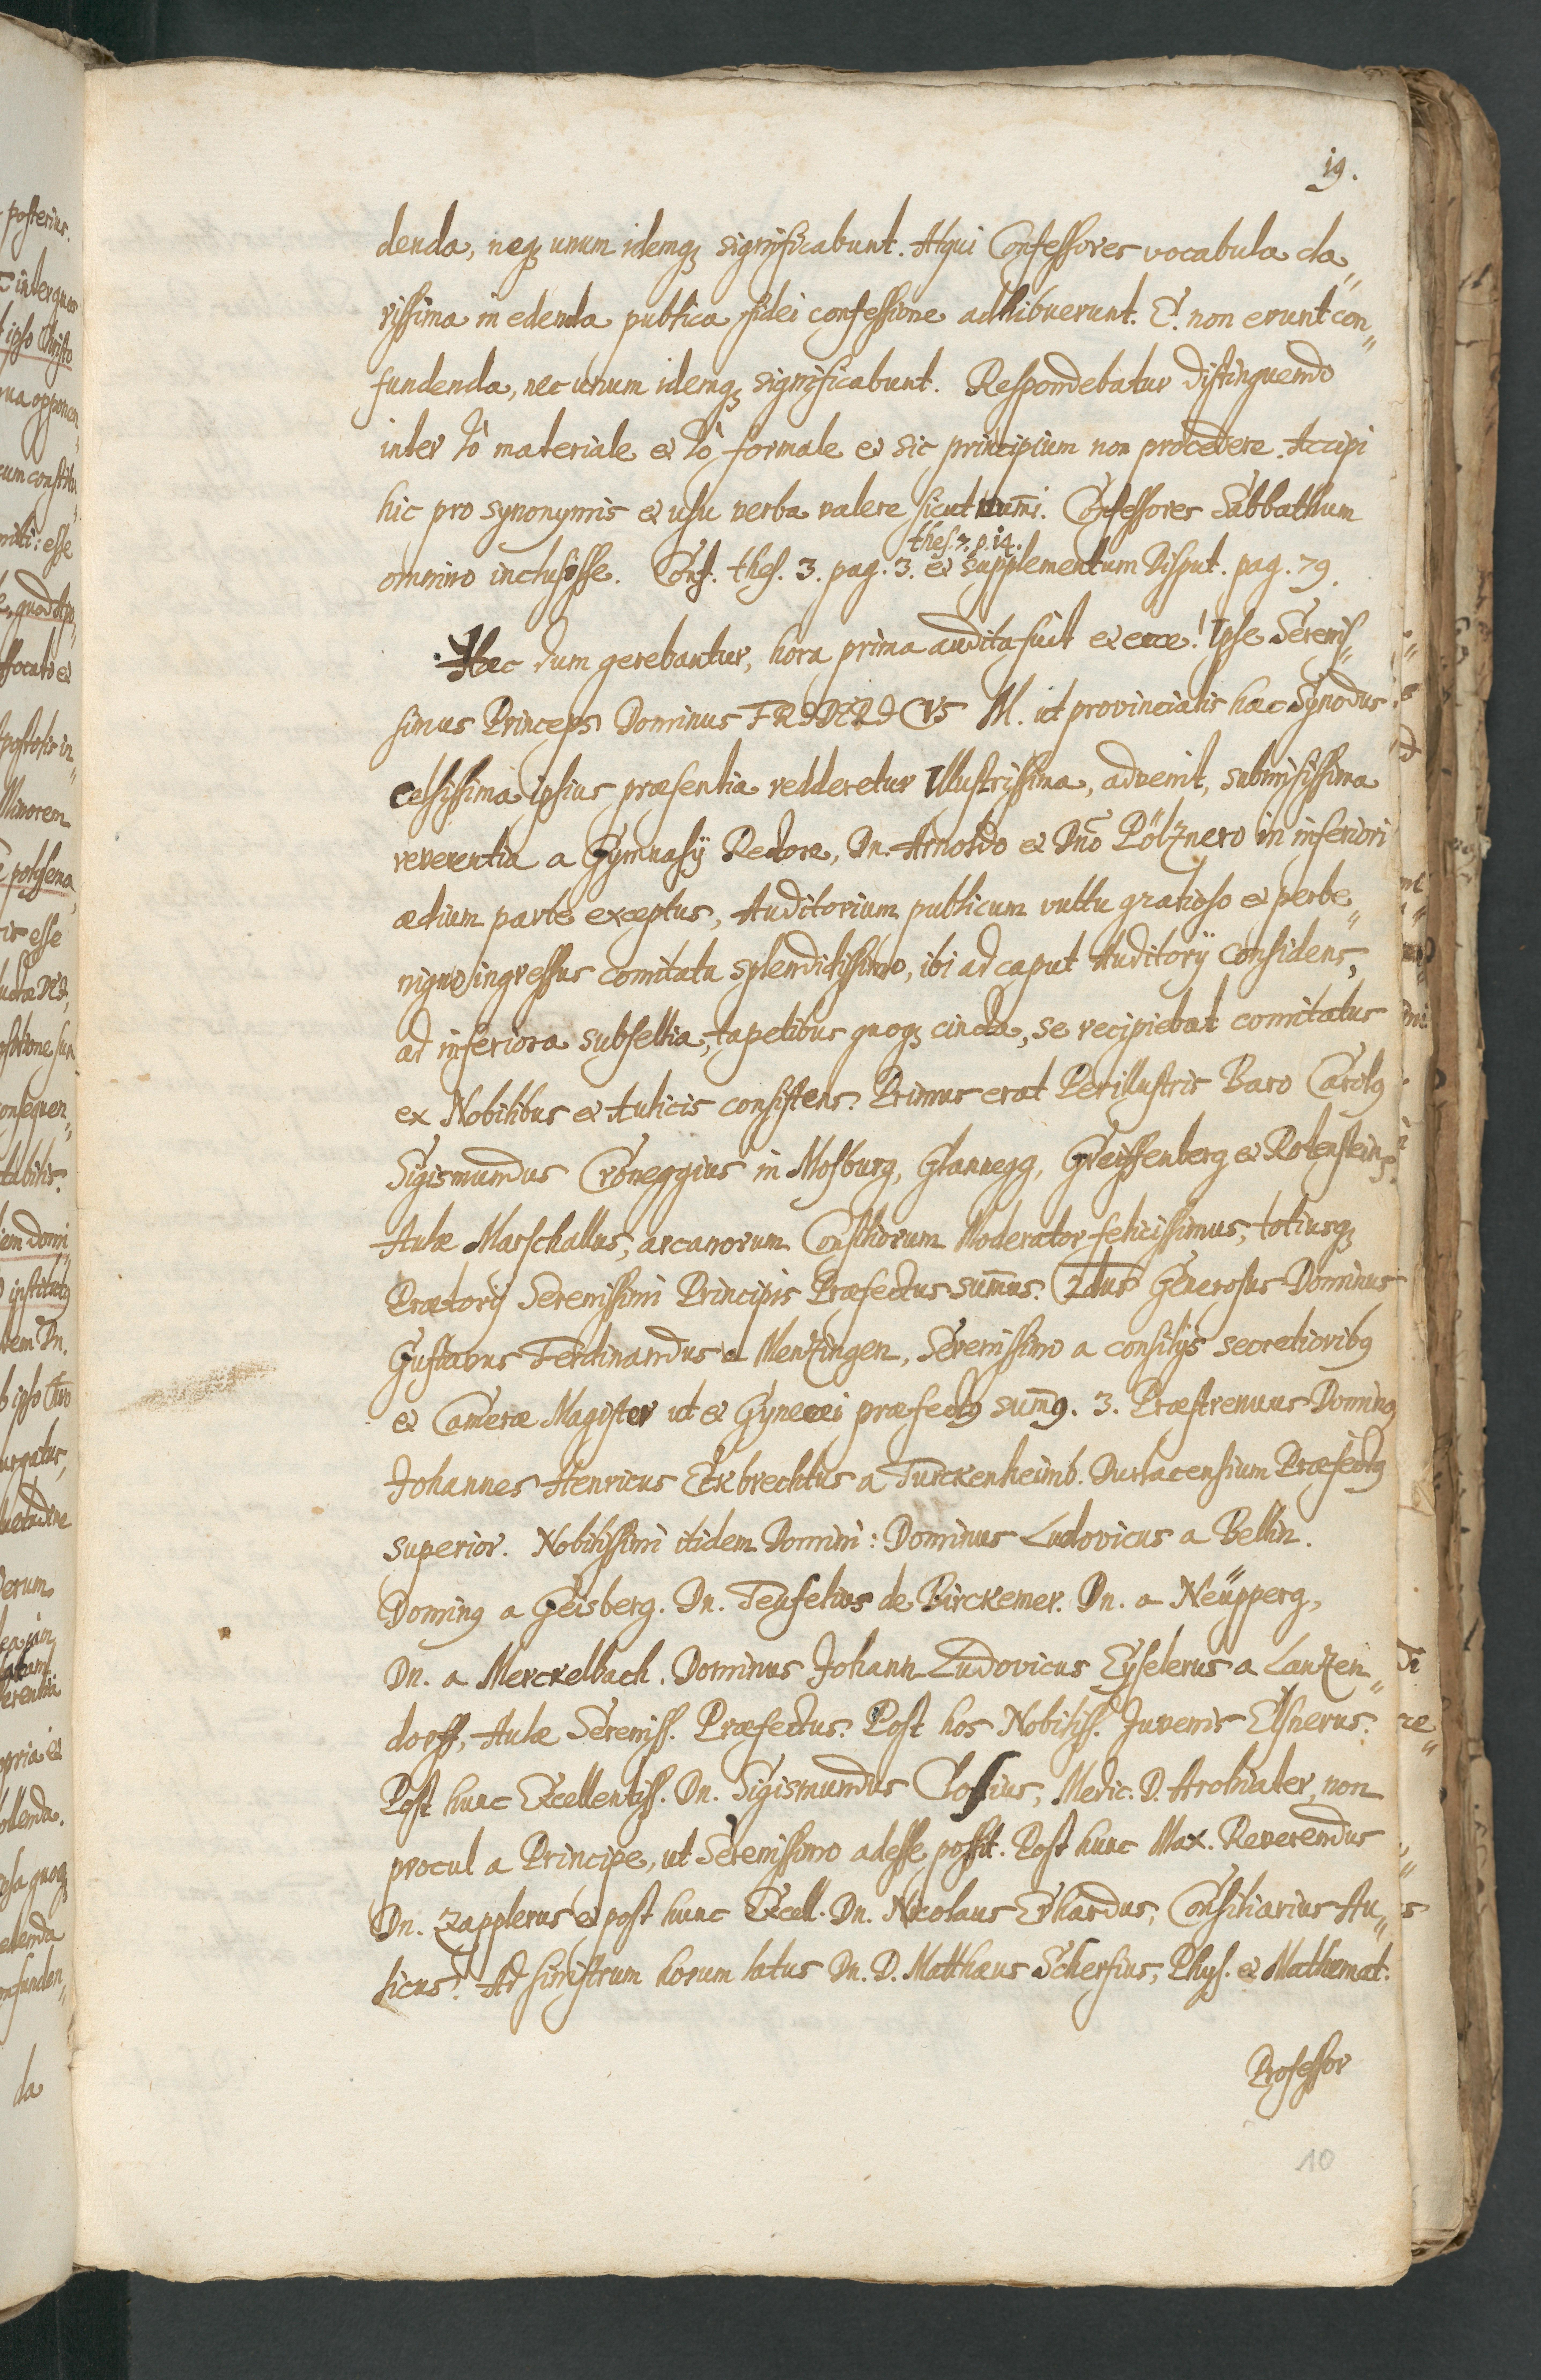 19.
denda, neqꝫ unum idemqꝫ significabunt. Atqui Confessores vocabula cla„
rissima in edenda publica fidei confessione adhibuerunt. E. non erunt con„
fundenda, nec unum idemqꝫ significabunt. Respondebatur distinguendo
inter τὸ materiale et τὸ formale et sic principium non procedere. Accipi
hic pro synonymis et usu verba valere sicut num̄i. Confessores Sabbathum
thes. 7. p. 14.
omnino inclusisse. Conf. thes. 3. pag. 3. et supplementum Disput. pag. 79.
Hæc dum gerebantur, hora prima audita fuit et ecce! Ipse Serenis„
simus Princeps Dominus FRIDERICVS M. ut provincialis hæc Synodus
celsissima ipsius præsentia redderetur Illustrissima, advenit, submisissima
reverentia a Gymnasij Rectore, Dn. Arnoldo et Dn̄o Pölznero in inferiori
ædium parte exceptus, Auditorium publicum vultu gratioso et perbe„
nigno ingressus comitatu splendidissimo, ibi ad caput Auditorij considens,
ad inferiora subsellia, tapetibus quoqꝫ cincta, se recipiebat comitatus
ex Nobilibus et Aulicis consistens. Primus erat Perillustris Baro Carolꝰ
Sigismundus Croneggius in Mosburg, Glannegg, Greiffenberg et Rotenstein,
Aulæ Marschallus, arcanorum Consiliorum Moderator felicissimus, totiusqꝫ
Prætorij Serenissimi Principis Præfectus sum̄us. 2dus Generosus Dominus
Gustavus Ferdinandus a Menzingen, Serenissimo a consilijs secretioribꝰ
et Cameræ Magister ut et Gynecei præfectꝰ sum̄ꝰ. 3. Præstrenuus Dominꝰ
Johannes Henricus Eckbrechtus a Türckenheimb. Durlacensium Præfectꝰ
superior. Nobilissimi itidem Domini: Dominus Ludovicus a Bellin.
Dominꝰ a Geisberg. Dn. Teufelius de Birckemer. Dn. a Neüpperg,
Dn. a Merckelbach. Dominus Johann Ludovicus Eyselerus a Lanzen„
dorff, Aulæ Sereniss. Præfectus. Post hos Nobiliss. Juvenis Elsnerus.
Post hunc Excellentiss. Dn. Sigismundus Closius, Medic. D. Archiater, non
procul a Principe, ut Serenissimo adesse possit. Post hunc Max. Reverendus
Dn. Zapplerus et post hunc Excell. Dn. Nicolaus Erhardus, Consiliarius Au„
licus. Ad sinistrum horum latus Dn. D. Matthæus Scherfius, Phys. et Mathemat.
Professor
10